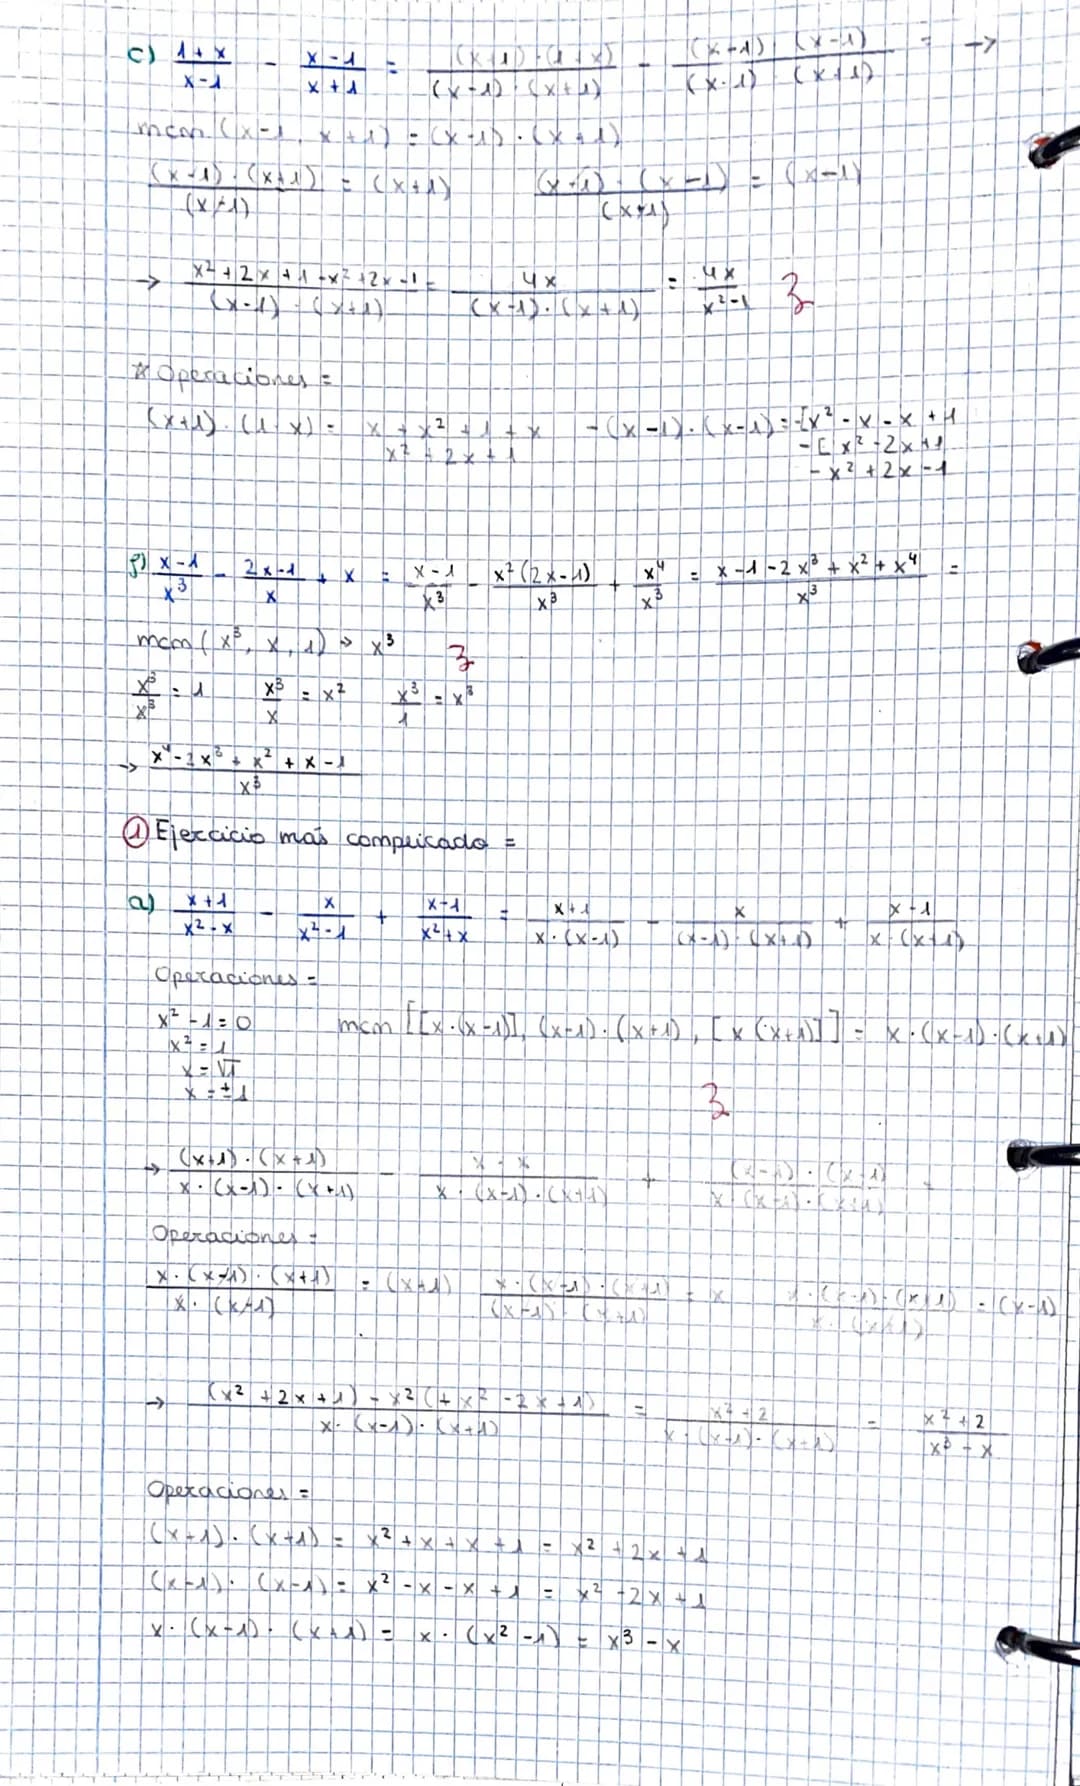 c) (1+x)/(x-1) - (x-1)/(x+1) = ((x+1)·(1+x))/((x-1)·(x+1)) - ((x-1)·(x-1))/((x-1)·(x+1)) = →
mcm (x-1, x+1) = (x-1)·(x+1)
((x-1)·(x+1))/(x-1) = (x+1) ((x-1)·(x-1))/(x+1) = (x-1)
→ (x²+2x+1-x²+2x-1)/((x-1)·(x+1)) = 4x/((x-1)·(x+1)) = 4x/(x²-1)
* Operaciones =
(x+1)·(1+x) = x + x² + 1 + x -(x-1)·(x-1) = -[x² - x - x + 1
x² + 2x + 1 -[x² - 2x + 1
-x² + 2x - 1
f) (x-1)/x³ - (2x-1)/x + x = (x-1)/x³ - x²(2x-1)/x³ + x⁴/x³ = (x-1-2x³+x²+x⁴)/x³ =
mcm (x³, x, 1) → x³
x³/x³ = 1 x³/x = x² x³/1 = x³
→ (x⁴-2x³+x²+x-1)/x³
① Ejercicio más complicado =
a) (x+1)/(x²-x) - x/(x²-1) + (x-1)/(x²+x) = (x+1)/(x·(x-1)) - x/((x-1)·(x+1)) + (x-1)/(x·(x+1))
Operaciones =
x² - 1 = 0 mcm [[x·(x-1)], (x-1)·(x+1), [x(x+1)]] = x·(x-1)·(x+1)
x² = 1
x = √1
x = ±1
→ ((x+1)·(x+1))/(x·(x-1)·(x+1)) - (x·x)/(x·(x-1)·(x+1)) + ((x-1)·(x-1))/(x·(x-1)·(x+1)) =
Operaciones =
(x·(x-1)·(x+1))/(x·(x-1)) = (x+1) (x·(x-1)·(x+1))/((x-1)·(x+1)) = x (x·(x-1)·(x+1))/(x·(x+1)) = (x-1)
→ ((x²+2x+1)-x²(+x²-2x+1))/(x·(x-1)·(x+1)) = (x²+2)/(x·(x-1)·(x+1)) = (x²+2)/(x³-x)
Operaciones =
(x+1)·(x+1) = x² + x + x + 1 = x² + 2x + 1
(x-1)·(x-1) = x² - x - x + 1 = x² - 2x + 1
x·(x-1)·(x+1) = x·(x²-1) = x³ - x